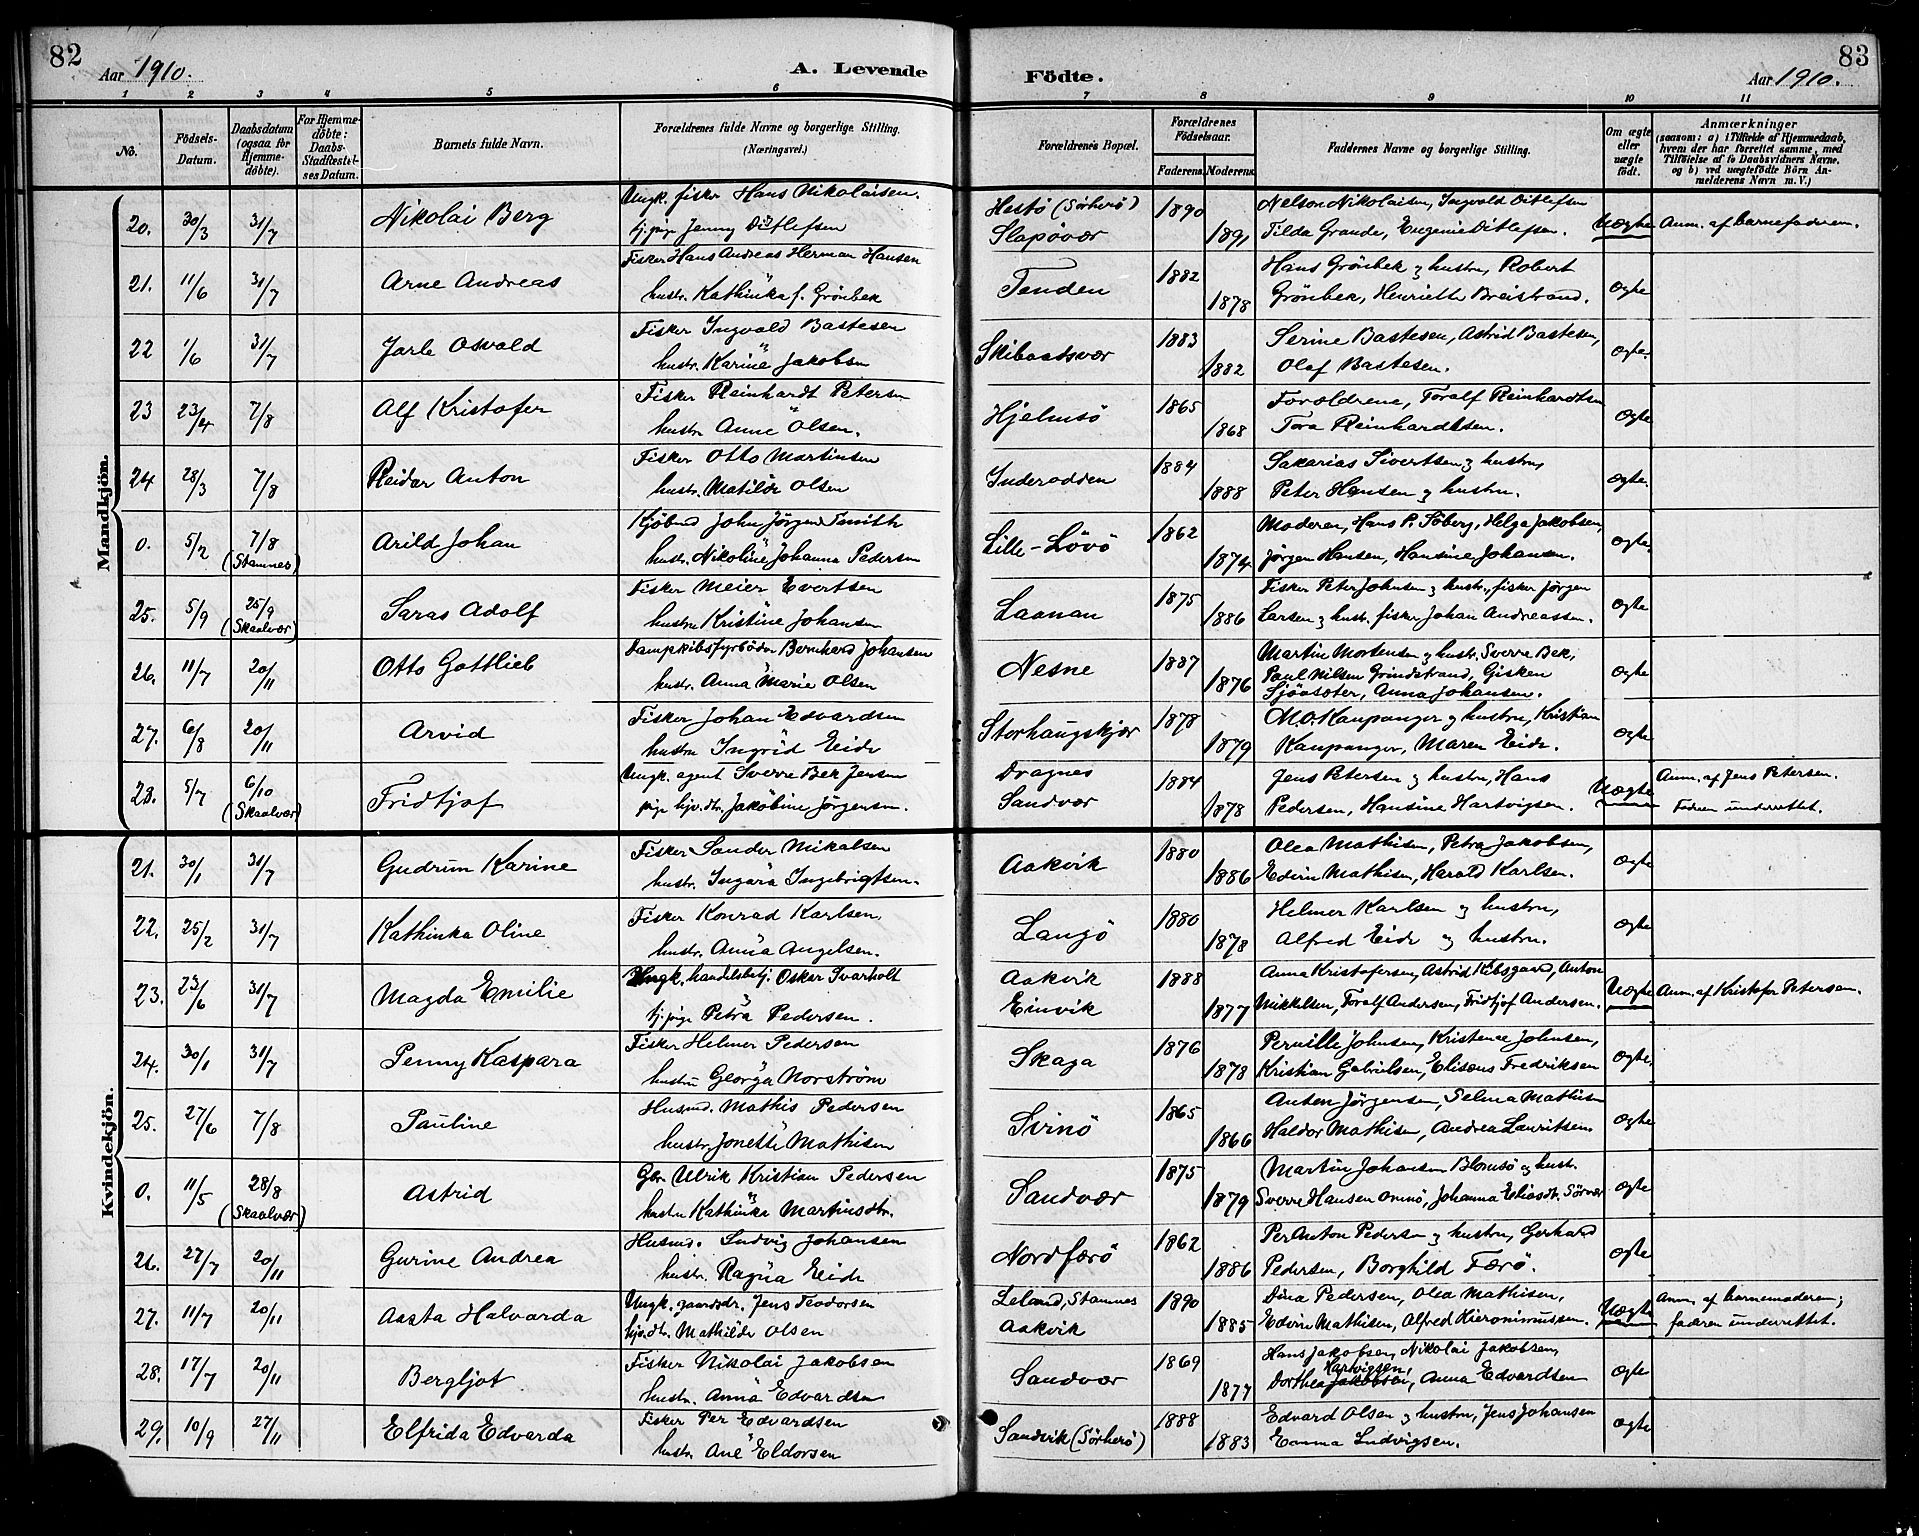 82
Aar 1910.
A. Levende
Födte.
83
Aar 1910.
1 2 3 4 5 6 7 8 9 10 11
No.
Födsels-Datum.
Daabsdatum (ogsaa for Hjemmedøbte).
For Hjemmedöbte: Daabs-Stadfæstelses Datum.
Barnets fulde Navn.
Forældrenes fulde Navne og borgerlige Stilling. (Næringsvei.)
Forældrenes Bopæl.
Forældrenes Födselsaar.
Faderens. Moderens.
Faddernes Navne og borgerlige Stilling.
Om ægte eller uægte födt.
Anmærkninger (saasom: a) i Tilfælde af Hjemmedaab, hvem der har forrettet samme, med Tilföielse af to Daabsvidners Navne, og b) ved uægtefödte Börn Anmelderens Navn m. V.)
Mandkjön.
20. 30/3 31/7 Nikolai Berg Ungk. fisker Hans Nikolaisen. Hestö (Sörherö) 1890 Nelson Nikolaisen, Ingvald Ditlefsen Uægte Anm. af barnefaderen.
tj. pige Jenny Ditlefsen Slapövær 1891 Tilda Grande, Eugenie Ditlefsen.
21. 11/6 31/7 Arne Andreas Fisker Hans Andreas Herman Hansen Tenden 1882 Hans Grönbek og hustru, Robert ægte
hustr. Kathinka f. Grönbek 1878 Grönbek, Henriette Breistrand.
22 1/6 31/7 Jarle Osvald Fisker Ingvald Bastesen Skibaadsvær 1883 Serine Bastesen, Astrid Bastesen, ægte.
hustr. Karine Jakobsen 1882 Olaf Bastesen.
23 23/4 7/8 Alf Kristofer Fisker Reinhardt Petersen Hjelmsö 1865 Forældrene, Toralf Reinhardtsen ægte
hustru Anne Olsen. 1868 Tora Reinhardtsen.
24 28/3 7/8 Reidar Anton Fisker Otto Martinsen Inderodden 1884 Sakarias Sivertsen og hustru, ægte.
hustr. Matilde Olsen 1888 Peter Hansen og hustru.
0. 5/2 7/8 (Stamnes) Arild Johan Kjöbmd John Jörgen Smith Lille-Lövö 1862 Moderen, Hans P. Söberg, Helga Jakobsen, ægte.
hustr. Nikoline Johanna Pedersen 1874 Jörgen Hansen, Hansine Johansen.
25. 5/9 25/9 (Skaalvær) Saras Adolf Fisker Meier Evertsen Laanan 1875 Fisker Peter Johnsen og hustr., fisker Jörgen ægte
hustru Kristine Johansen 1886 Larsen og hustr. fisker Johan Andreassen.
26. 11/7 20/11 Otto Gottlieb Dampskibsfyrböder Bernhard Johansen Nesne 1887 Martin Mortensen og hustr. Sverre Bek, ægte
hustr. Anna Marie Olsen 1876 Paul Nilsen Grindstrand, Gisken
Sjöasæter, Anna Johansen.
27. 6/8 20/11 Arvid Fisker Johan Edvardsen Storhaugskjær 1878 M.O. Kaupanger og hustru, Kristian ægte
hustru Ingrid Eide 1879 Kaupanger, Maren Eide.
28. 5/7 6/10 (Skaalvær) Fridtjof Ungk. agent Sverre Bek Jensen Dragnes 1884 Jens Petersen og hustru, Hans Uægte Anm. af Jens Petersen.
pige hjv. dtr. Jakobine Jörgensen. Sandvær 1878 Pedersen, Hansine Hartvigsen. Faderen underrettet.
Kvindekjön.
21. 30/1 31/7 Gudrun Karine Fisker Sander Mikalsen Aakvik 1880 Olea Mathisen, Petra Jakobsen, ægte
hustr. Ingara Ingebrigtsen. 1886 Edvin Mathisen, Harald Karlsen.
22. 25/2 31/7 Kathinka Oline Fisker Konrad Karlsen Langö 1880 Helmer Karlsen og hustru, ægte
hustr. Anna Angelsen. 1878 Alfred Eide og hustru.
23. 23/6 31/7 Magda Emilie Ungk. handelsbetj. Osker Svarholt Aakvik 1888 Anna Kristofersen, Astrid Kibsgaard, Anton Uægte Anm. af Kristofer Petersen.
tj. pige Petra Pedersen. Einvik 1877 Mikkelsen, Toralf Andersen, Fridtjof Andersen.
24. 30/1 31/7 Penny Kaspara Fisker Helmer Pedersen Skaga 1876 Pernille Johnsen, Kristence Johnsen, ægte
hustru Georga Norström 1878 Kristian Gabrielsen, Elisæus Fredriksen
25. 27/6 7/8 Pauline Husmd. Mathis Pedersen Svinö 1865 Anton Jörgensen, Selma Mathisen ægte
hustr. Jonette Mathisen 1866 Haldor Mathisen, Andrea Lauritsen
0. 11/5 28/8 (Skaalvær) Astrid Gbr. Ulrik Kristian Pedersen Sandvær 1875 Martin Johansen Blomsö og hust. ægte
hustru Kathinka Martinsdtr. 1879 Sverre Hansen Omnö, Johanna Eliasdtr. Sörvær
26. 27/7 20/11 Gurine Andrea Husmd. Ludvig Johansen Nordfærö 1862 Per Anton Pedersen og hustru, Gerhard ægte
hustr. Ragna Eide 1886 Pedersen, Borghild Færö.
27. 11/7 20/11 Aasta Halvarda Ungk. gaardsdr. Jens Teodorsen Leland, Stamnes 1890 Dina Pedersen, Olea Mathisen, Uægte Anm. af barnemoderen;
hjv. dtr. Mathilde Olsen Aakvik 1885 Edvin Mathisen, Alfred Hieronimussen. faderen underrettet.
28. 17/7 20/11 Bergljot Fisker Nikolai Jakobsen Sandvær 1869 Hans Jakobsen, Nikolai Jakobsen, ægte
hustr. Anna Edvardsen 1877 Dorthea Jakobsen Hartvigsen, Anna Edvardsen
29. 10/9 27/11 Elfrida Edvarda Fisker Per Edvardsen Sandvik (Sörherö) 1888 Edvard Olsen og hustru, Jens Johansen ægte
hustr. Ane Eldorsen 1883 Emma Ludvigsen.